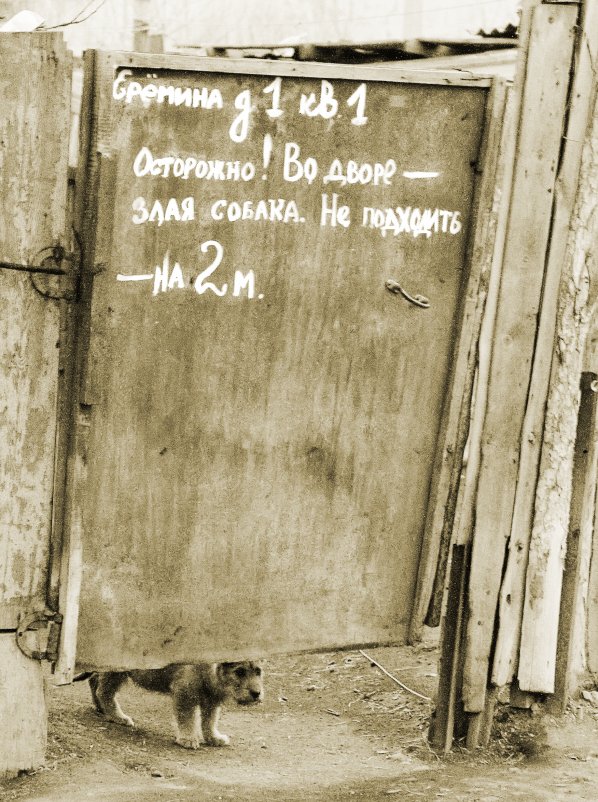 Ерёмина д 1 кв. 1
Осторожно! Во дворе —
злая собака. Не подходить
— на 2 м.